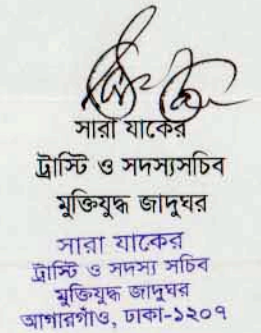 সারা যাকের
ট্রাস্টি ও সদস্যসচিব
মুক্তিযুদ্ধ জাদুঘর
সারা যাকের
ট্রাস্টি ও সদস্য সচিব
মুক্তিযুদ্ধ জাদুঘর
আগারগাঁও, ঢাকা-১২০৭